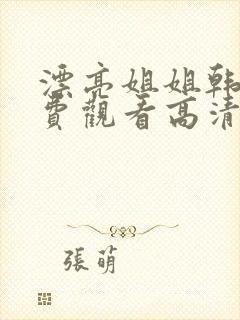 漂亮姐姐韩
費觀看高清
張萌